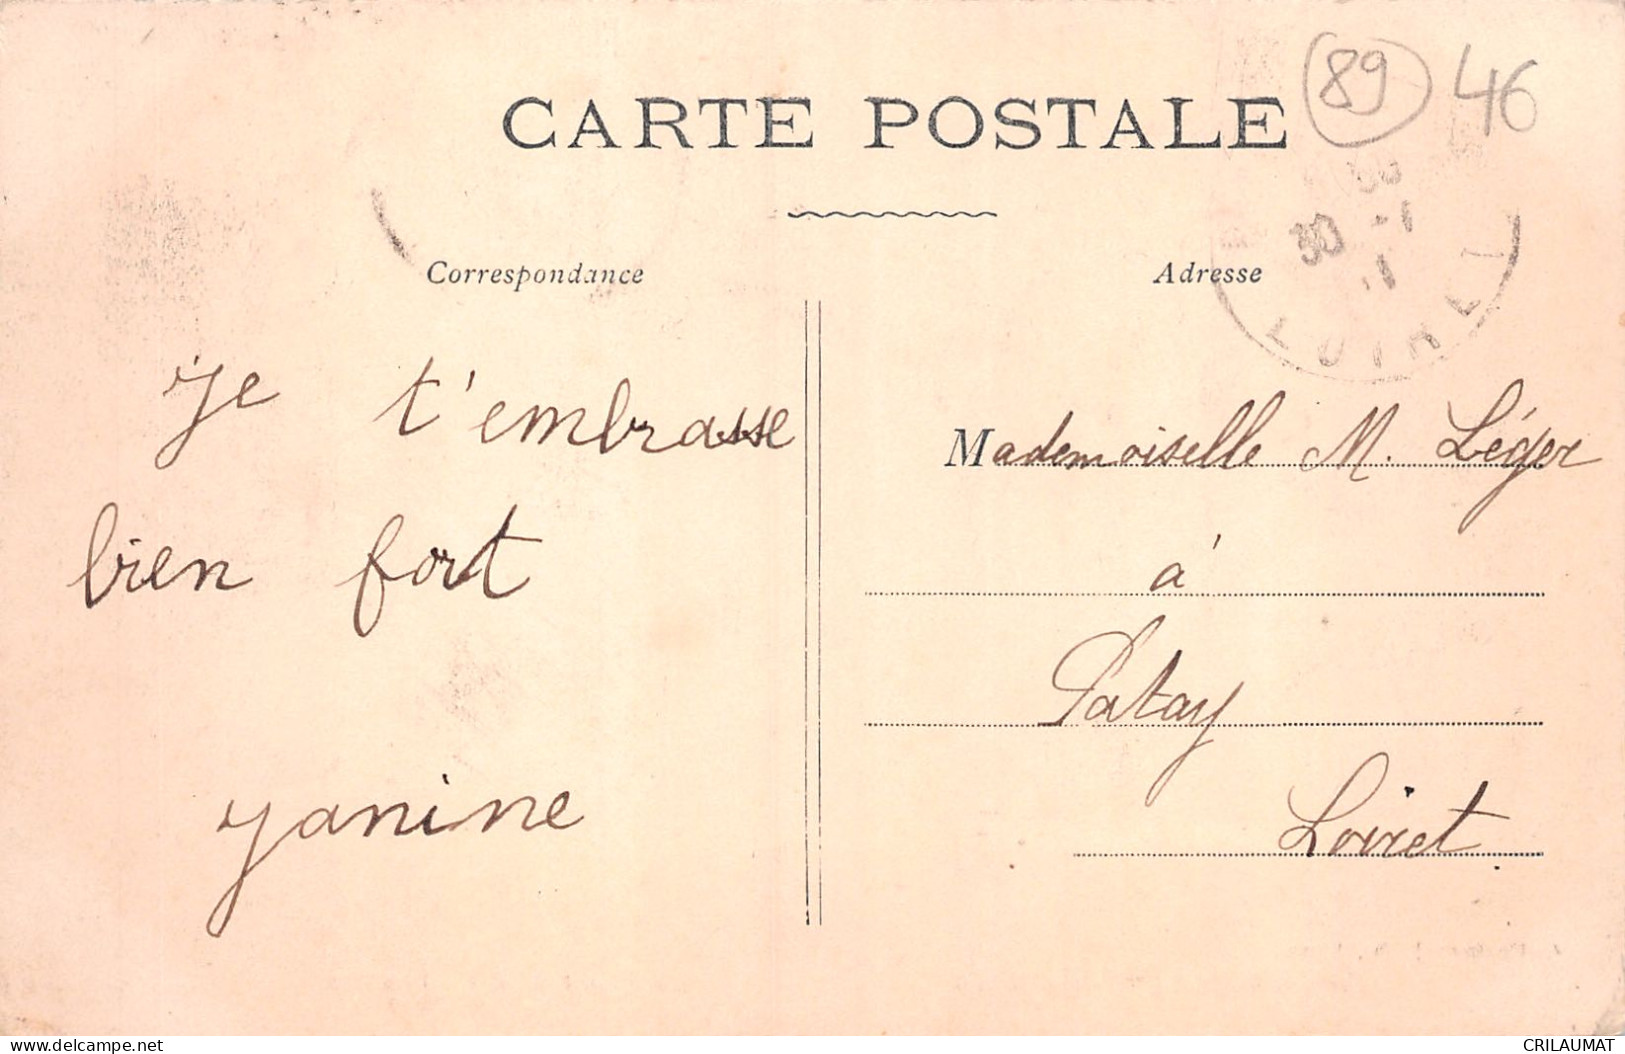 CARTE POSTALE
89 46
30 -1
LOIRET
Correspondance
Adresse
Je t'embrasse
bien fort
yanine
Mademoiselle M. Léger
à
Patay
Loiret.
www.delcampe.net
CRILAUMAT